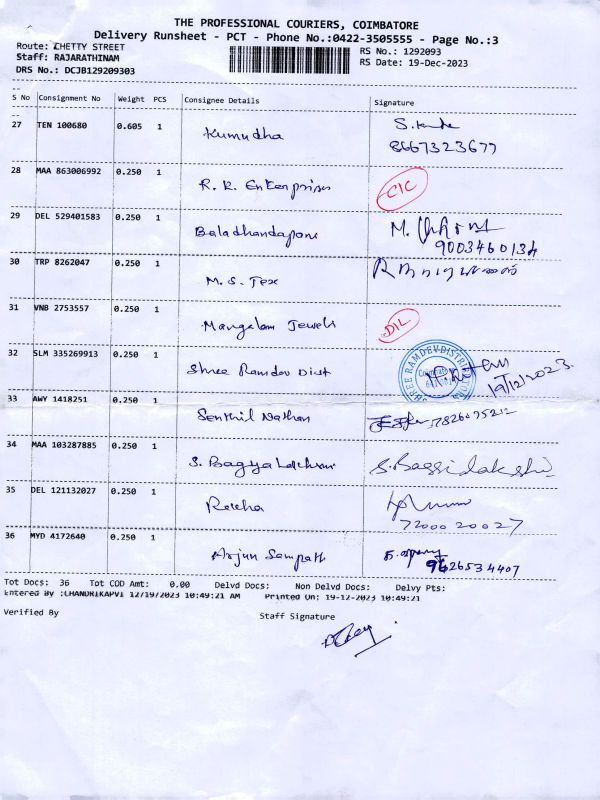 THE PROFESSIONAL COURIERS, COIMBATORE
Delivery Runsheet - PCT - Phone No.:0422-3505555 - Page No.:3
Route: CHETTY STREET
RS No.: 1292093
Staff: RAJARATHINAM
RS Date: 19-Dec-2023
DRS No.: DCJB129209303
S No Consignment No Weight PCS Consignee Details Signature
27 TEN 100680 0.605 1 Kumudha
8667323677
28 MAA 863006992 0.250 1 R. K. Enterprises CIC
29 DEL 529401583 0.250 1 Baladhandapani M.
9003460134
30 TRP 8262047 0.250 1 M. S. Tex
31 VNB 2753557 0.250 1 Mangalam Jewels DIL
32 SLM 335269913 0.250 1 Shree Ramdev Dist 19/12/2023
SHREE RAMDEV DISTRIBUTORS
33 AWY 1418251 0.250 1 Senthil Nathan
34 MAA 103287885 0.250 1 S. Bagyalakshmi S. Baggialakshmi
35 DEL 121132027 0.250 1 Rekha
7200020027
36 MYD 4172640 0.250 1 Arjun Sampath
9626534407
Tot Docs: 36 Tot COD Amt: 0.00 Delvd Docs: Non Delvd Docs: Delvy Pts:
Entered By :CHANDRIKAPVI 12/19/2023 10:49:21 AM Printed On: 19-12-2023 10:49:21
Verified By Staff Signature